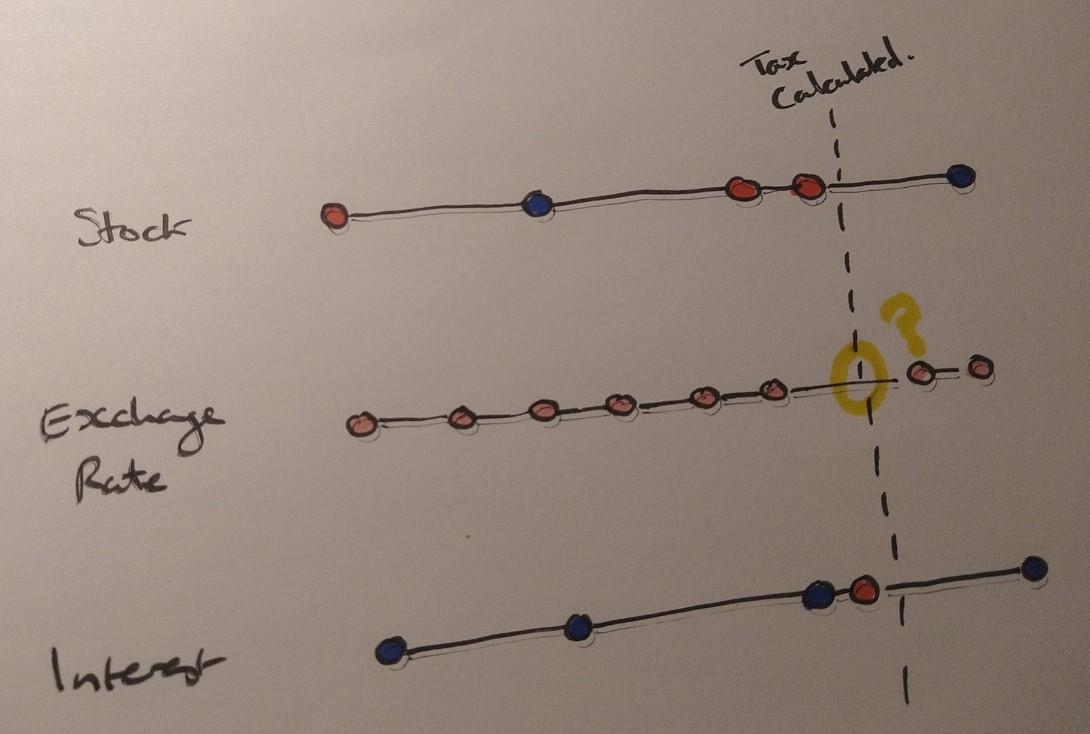 Tax
Calculated.
Stock
?
Exchage
Rate
Interest